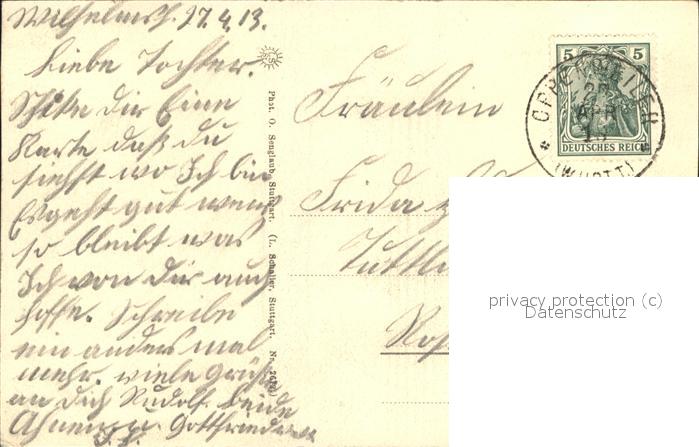 Wilhelmsh. 27.4.13.
Liebe Tochter.
Schike Dir Eine
Karte daß du
siehst wo Ich bin
Es geht gut wenn
so bleibt was
Ich von Dir auch
hoffe. Schreibe
ein anders mal
mehr. viele Grüße
an dich Rudolf beide
Gottfried
Phot. O. Senglaub, Stuttgart. (L. Schaller, Stuttgart. Nr.
Fräulein
Frida
5 5
DEUTSCHES REICH
OPPENWEILER
APR
(WÜRTT)
privacy protection (c)
Datenschutz